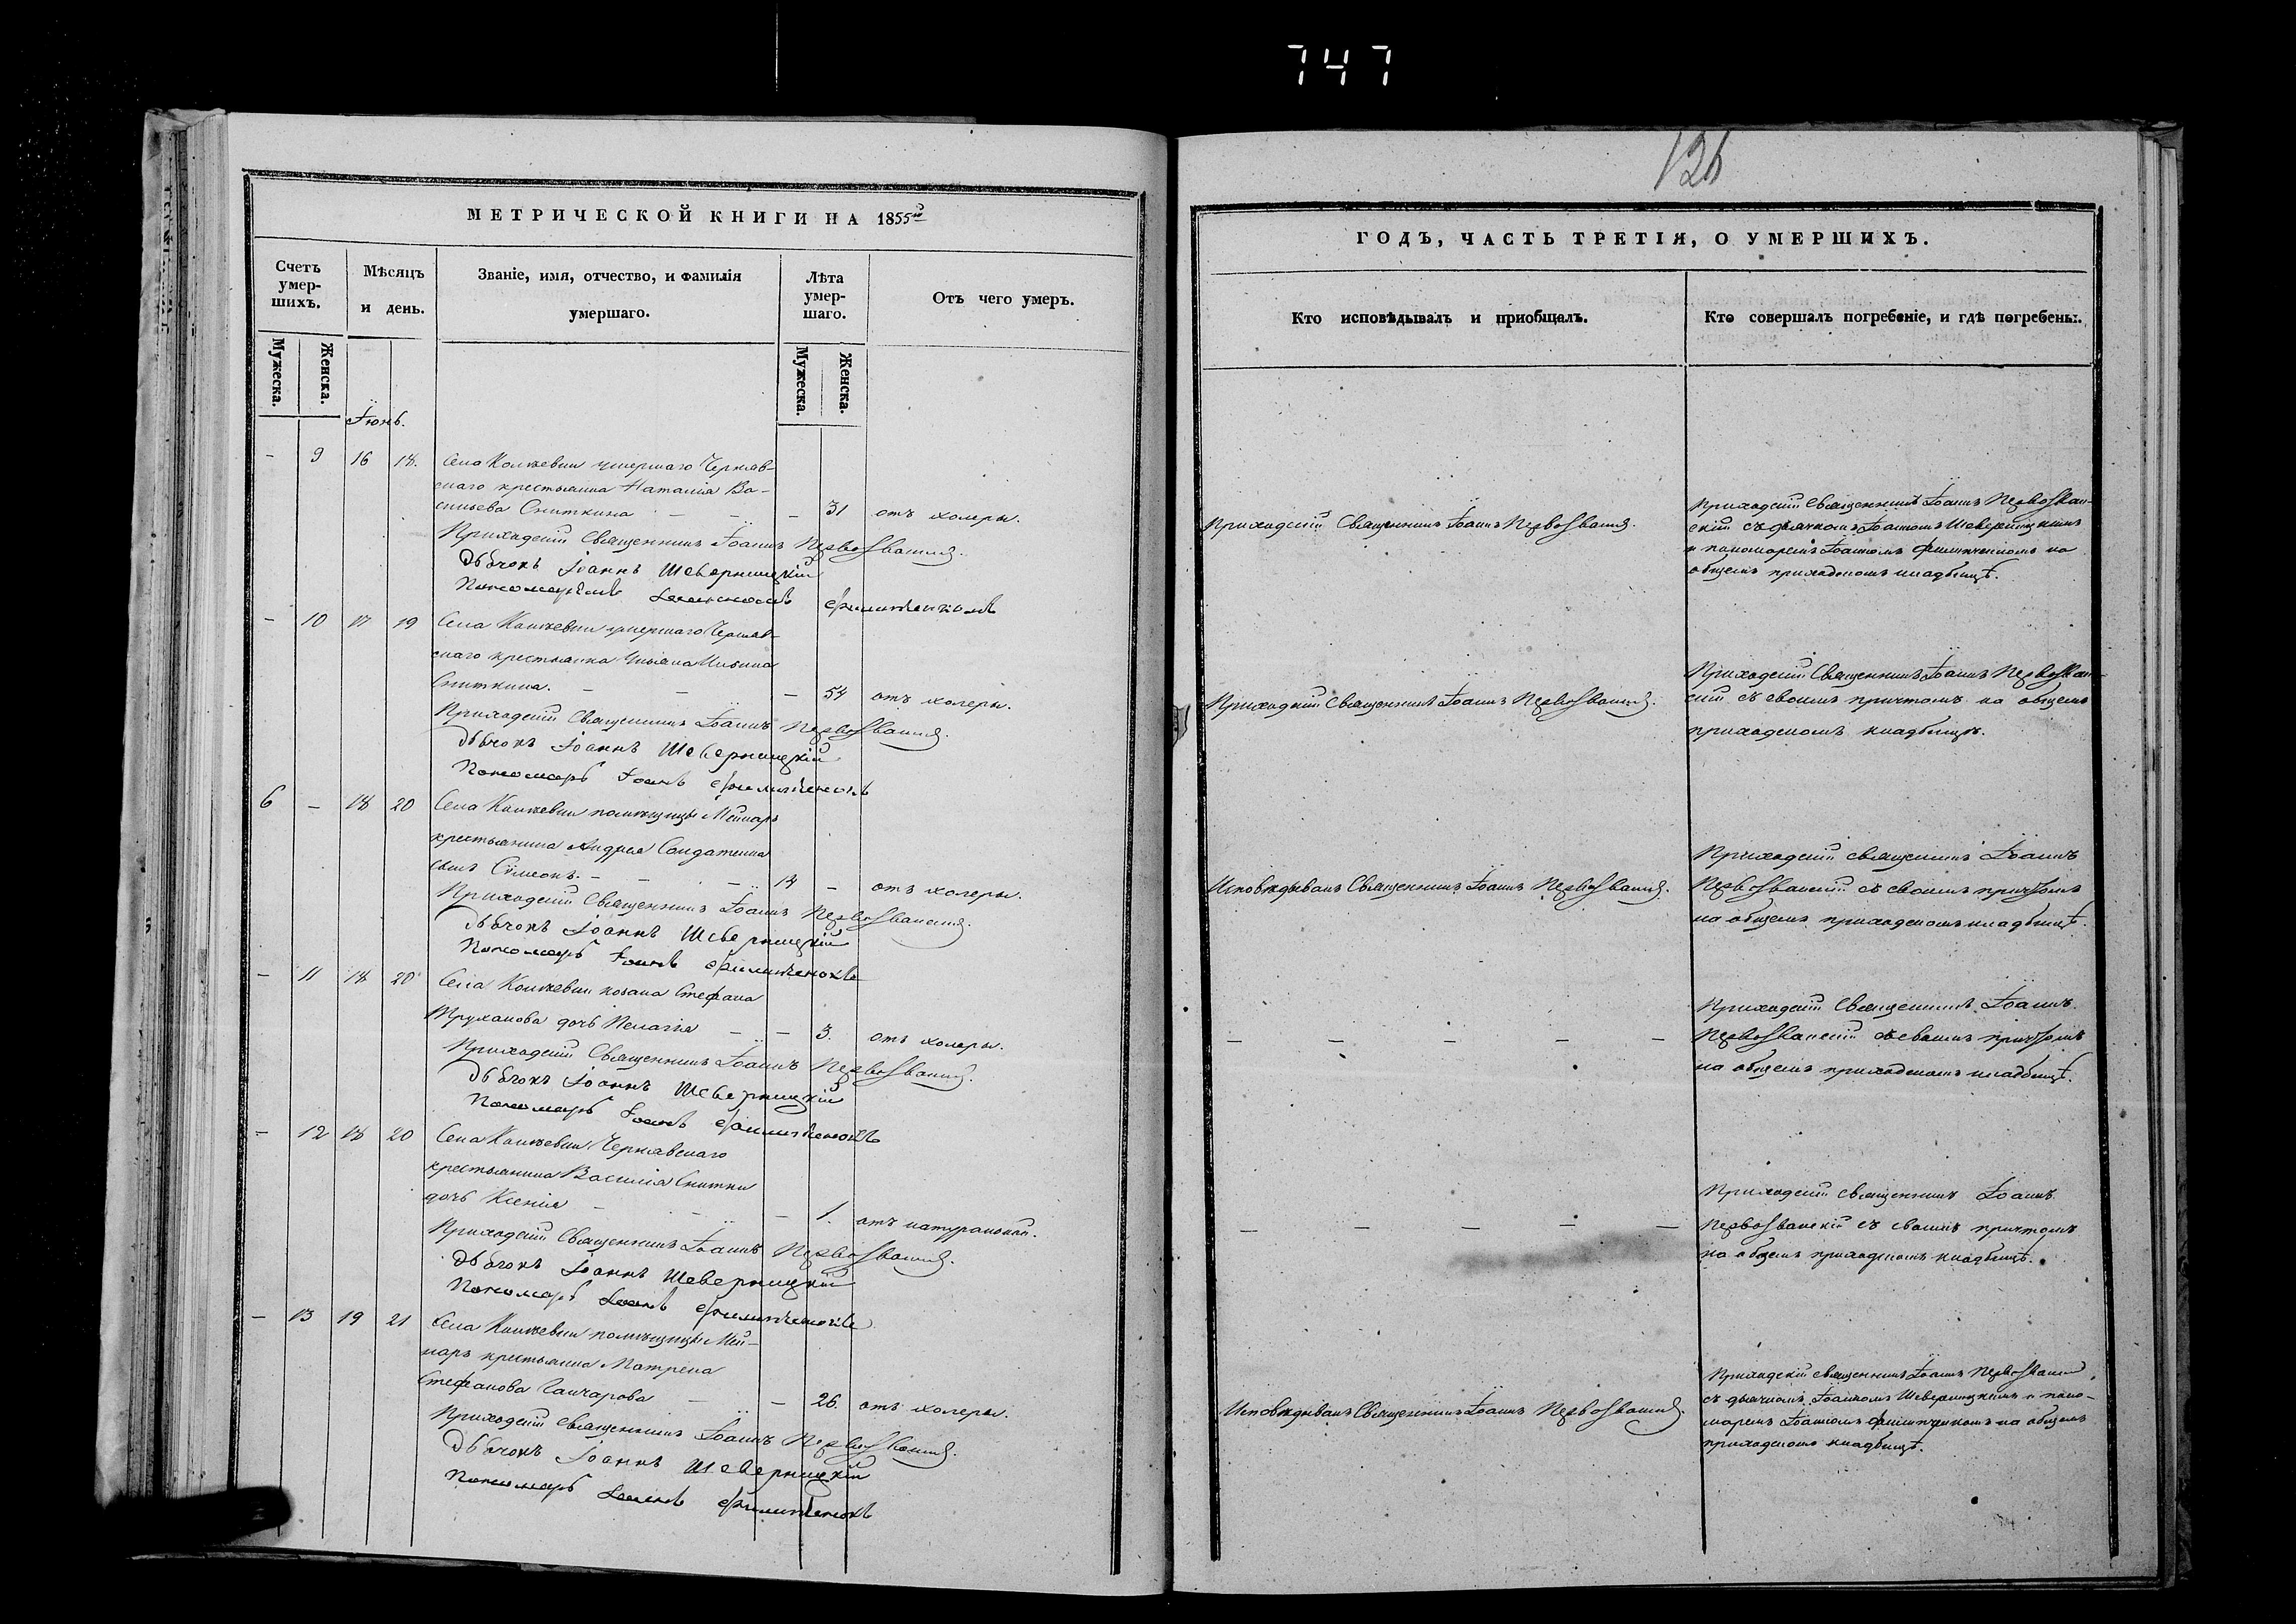 747
126
МЕТРИЧЕСКОЙ КНИГИ НА 1855й
Счетъ умер-шихъ.
Мѣсяцъ и день.
Званіе, имя, отчество, и фамилія
умершаго.
Лѣта умер-шаго.
Отъ чего умеръ.
Мужеска.
Женска.
Мужеска.
Женска.
Іюнь.
- 9 16 18. Села умершаго Черняв-
скаго крестьянина Наталія Ва-
сильева Сниткина - 31 отъ холеры.
Приходскій Священникъ Іоаннъ Первозванскій.
Дьячокъ Іоаннъ Шеверницкій
- 10 17 19 Села умершаго Черняв-
скаго крестьянина Ильина
Сниткина. - 54 отъ холеры.
Приходскій Священникъ Іоаннъ Первозванскій.
Дьячокъ Іоаннъ Шеверницкій
Пономарь Іоанъ Филипченокъ
6 - 18 20 Села помѣщицы
крестьянина Андрея Солдатенка
сынъ Сѵмеонъ. - 14 - отъ холеры.
Приходскій Священникъ Іоаннъ Первозванскій.
Дьячокъ Іоаннъ Шеверницкій
Пономарь Іоанъ Филипченокъ
- 11 18 20 Села козака Стефана
Труханова дочь Пелагія - - 3. отъ холеры.
Приходскій Священникъ Іоаннъ Первозванскій.
Дьячокъ Іоаннъ Шеверницкій
Пономарь Іоанъ Филипченокъ
- 12 18 20 Села Чернявскаго
крестьянина Василія Снитки
дочь Ксенія - - 1. отъ натуральной.
Приходскій Священникъ Іоаннъ Первозванскій.
Дьячокъ Іоаннъ Шеверницкій
Пономарь Іоанъ Филипченокъ
- 13 19 21 Села помѣщицы Мей-
наръ крестьянка Матрена
Стефанова Ганчарова - - 26. отъ холеры.
Приходскій Священникъ Іоаннъ Первозванскій.
Дьячокъ Іоаннъ Шеверницкій
Пономарь Іоанъ Филипченокъ
ГОДЪ, ЧАСТЬ ТРЕТІЯ, О УМЕРШИХЪ.
Кто исповѣдывалъ и пріобщалъ.
Кто совершалъ погребеніе, и гдѣ погребены.
Приходскій Священникъ Іоаннъ Первозванскій.
Приходскій Священникъ Іоаннъ Первозван-
скій съ дьячкомъ Іоанномъ Шеверницкимъ
и пономаремъ Іоанномъ Филипченкомъ на
общемъ приходскомъ кладбищѣ.
Приходскій Священникъ Іоаннъ Первозванскій.
Приходскій Священникъ Іоаннъ Первозван-
скій съ своимъ причтомъ на общемъ
приходскомъ кладбищѣ.
Исповѣдывалъ Священникъ Іоаннъ Первозванскій.
Приходскій священникъ Іоаннъ
Первозванскій съ своимъ причтомъ
на общемъ приходскомъ кладбищѣ.
- - - - -
Приходскій Священникъ Іоаннъ
Первозванскій съ своимъ причтомъ
на общемъ приходскомъ кладбищѣ.
- - - - -
Приходскій священникъ Іоаннъ
Первозванскій съ своимъ причтомъ
на общемъ приходскомъ кладбищѣ.
Исповѣдывалъ Священникъ Іоаннъ Первозванскій.
Приходскій священникъ Іоаннъ
съ дьячкомъ Іоанномъ Шеверницкимъ и поно-
маремъ Іоанномъ Филипченкомъ на общемъ
приходскомъ кладбищѣ.